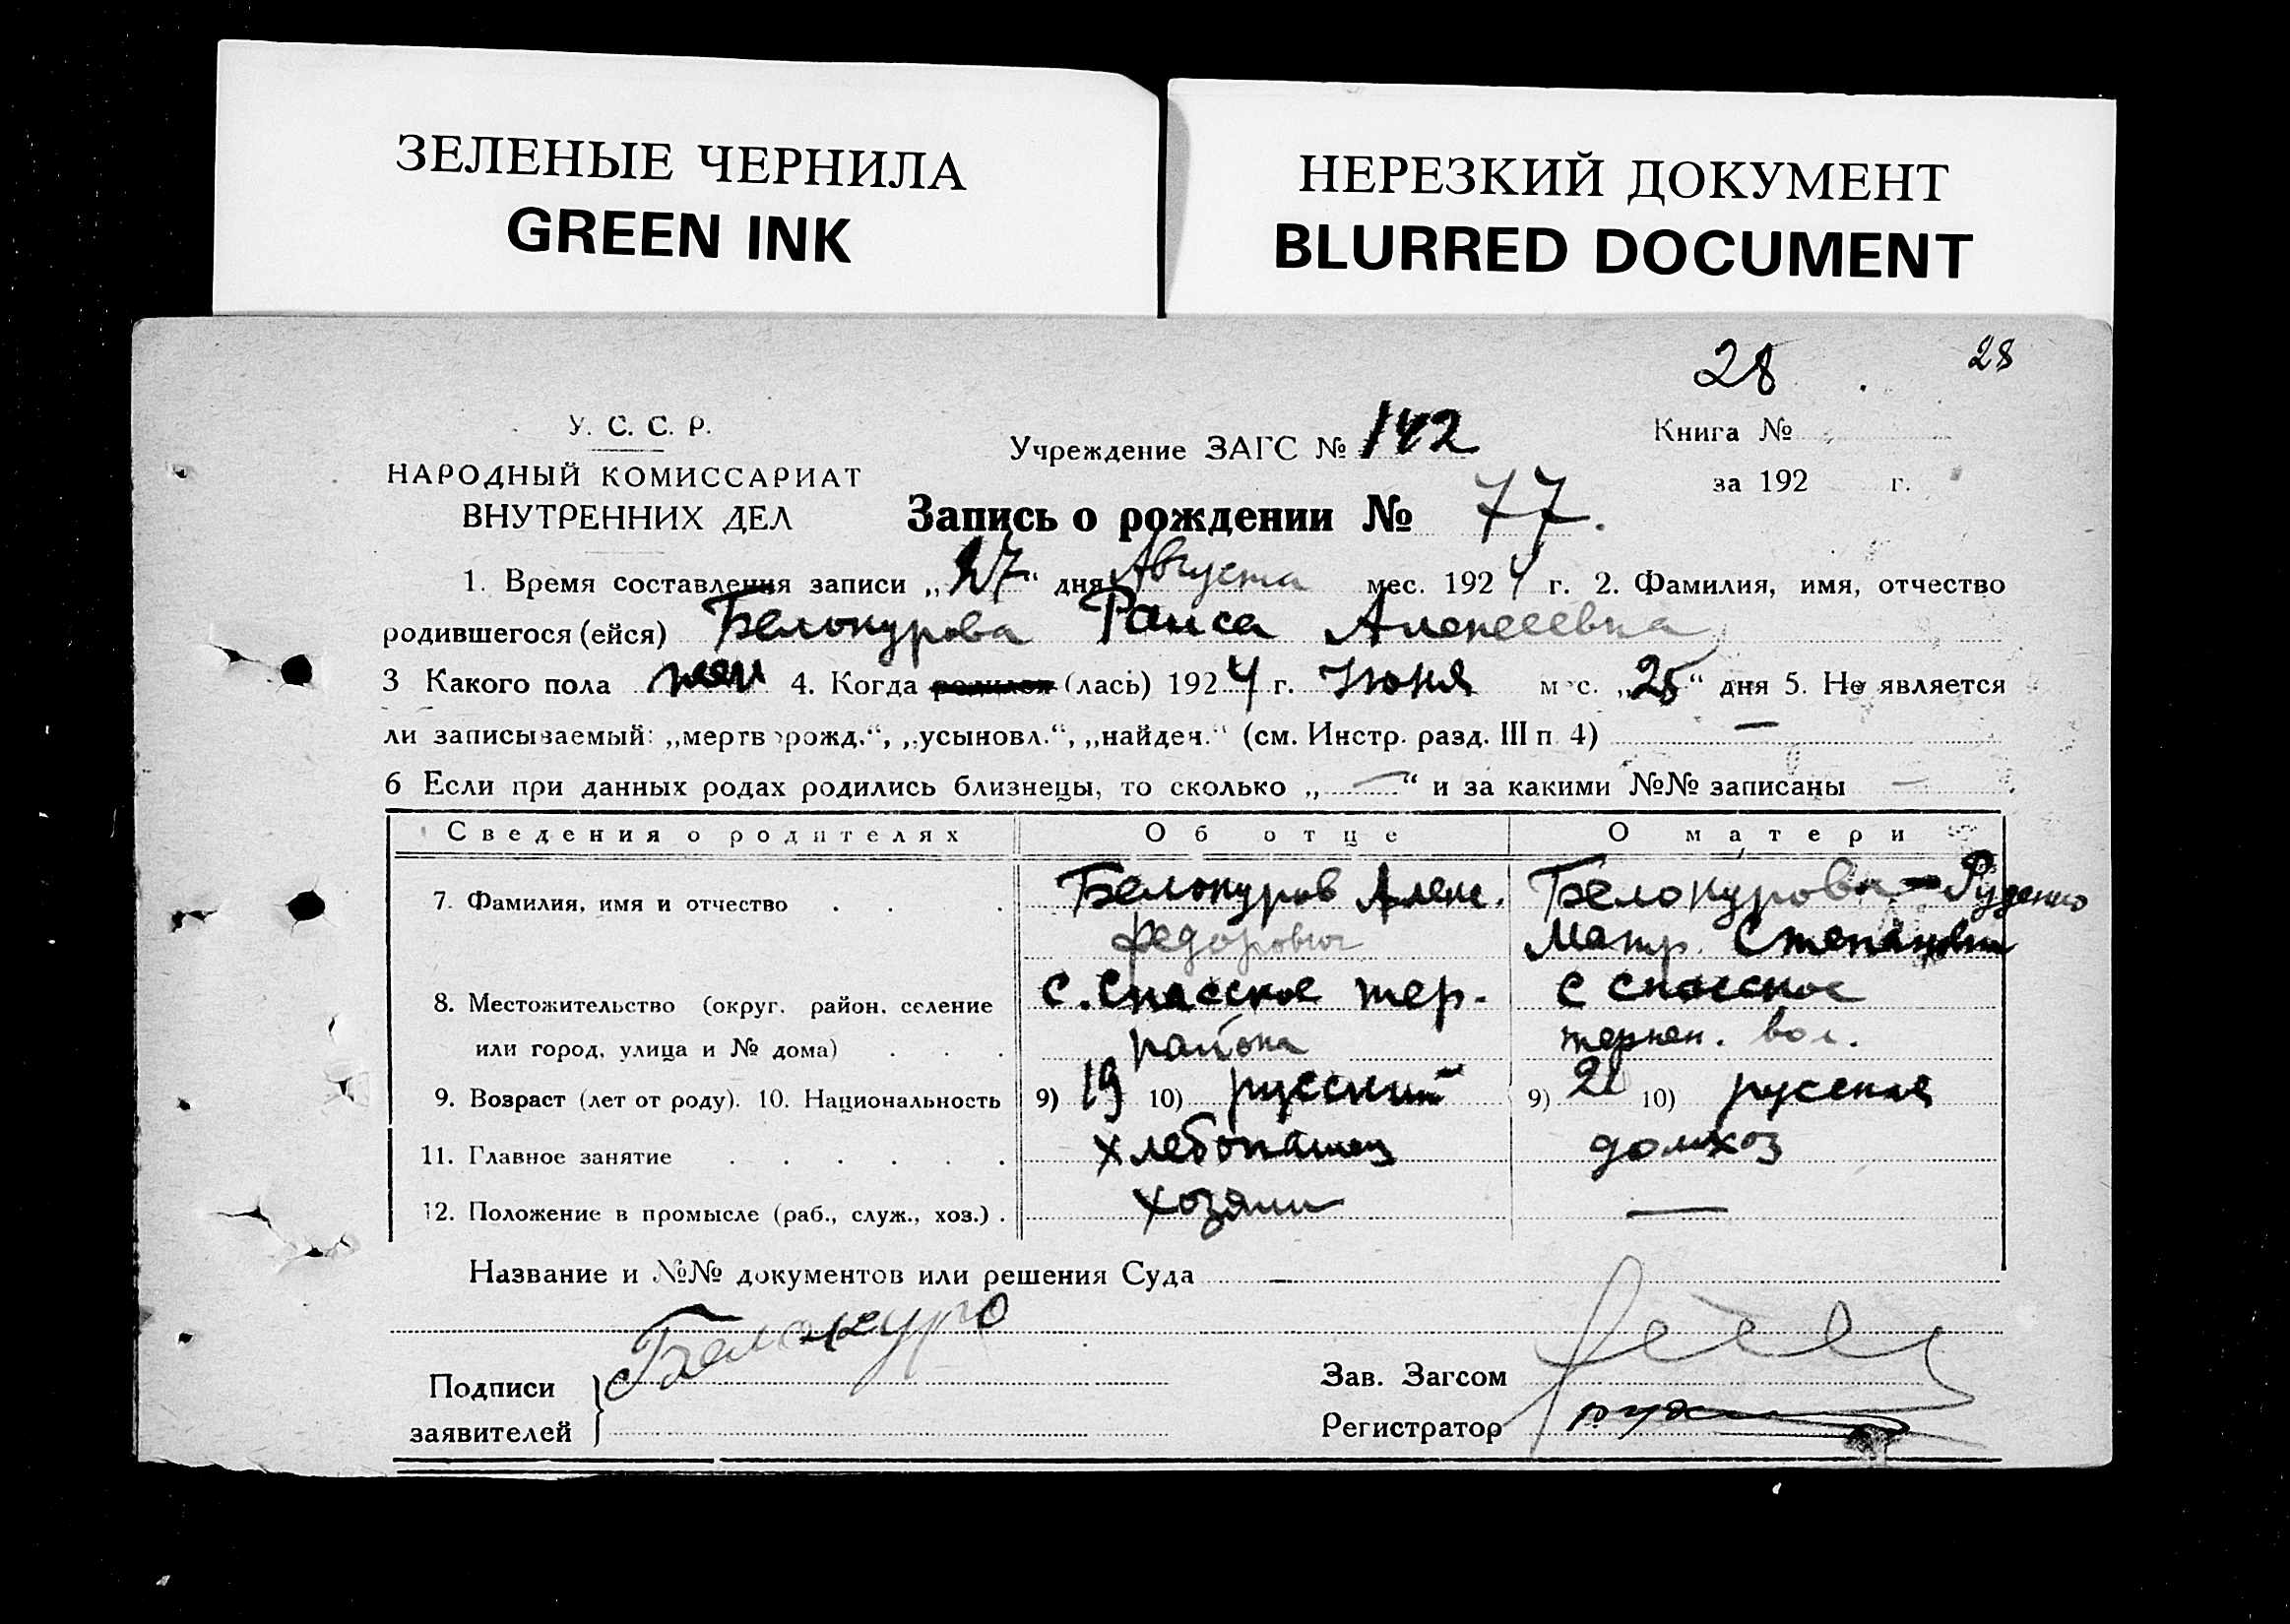 ЗЕЛЕНЫЕ ЧЕРНИЛА
GREEN INK
НЕРЕЗКИЙ ДОКУМЕНТ
BLURRED DOCUMENT
28 28
У. С. С. Р.
НАРОДНЫЙ КОМИССАРИАТ
ВНУТРЕННИХ ДЕЛ
Учреждение ЗАГС № 142
Книга №
за 192 г.
Запись о рождении № 77.
1. Время составления записи „27“ дня Августа мес. 1924 г. 2. Фамилия, имя, отчество
родившегося (ейся) Белокурова Раиса Алексеевна
3 Какого пола жен 4. Когда родился (лась) 1924 г. Июня мес. „25“ дня 5. Не является
ли записываемый: „мертворожд.“, „усыновл.“, „найден.“ (см. Инстр. разд. III п 4) —
6 Если при данных родах родились близнецы, то сколько „—“ и за какими №№ записаны —
Сведения о родителях Об отце О матери
7. Фамилия, имя и отчество Белокуров Алекс. Белокурова-Руденко
Федорович Матр. Степановн
8. Местожительство (округ, район, селение с. Спасское тер. с спасское
или город, улица и № дома) района вол.
9. Возраст (лет от роду). 10. Национальность 9) 19 10) русский 9) 10) русская
11. Главное занятие хлебопашец домхоз
12. Положение в промысле (раб., служ., хоз.) хозяин —
Название и №№ документов или решения Суда —
Белокуро
Подписи
заявителей
Зав. Загсом
Регистратор